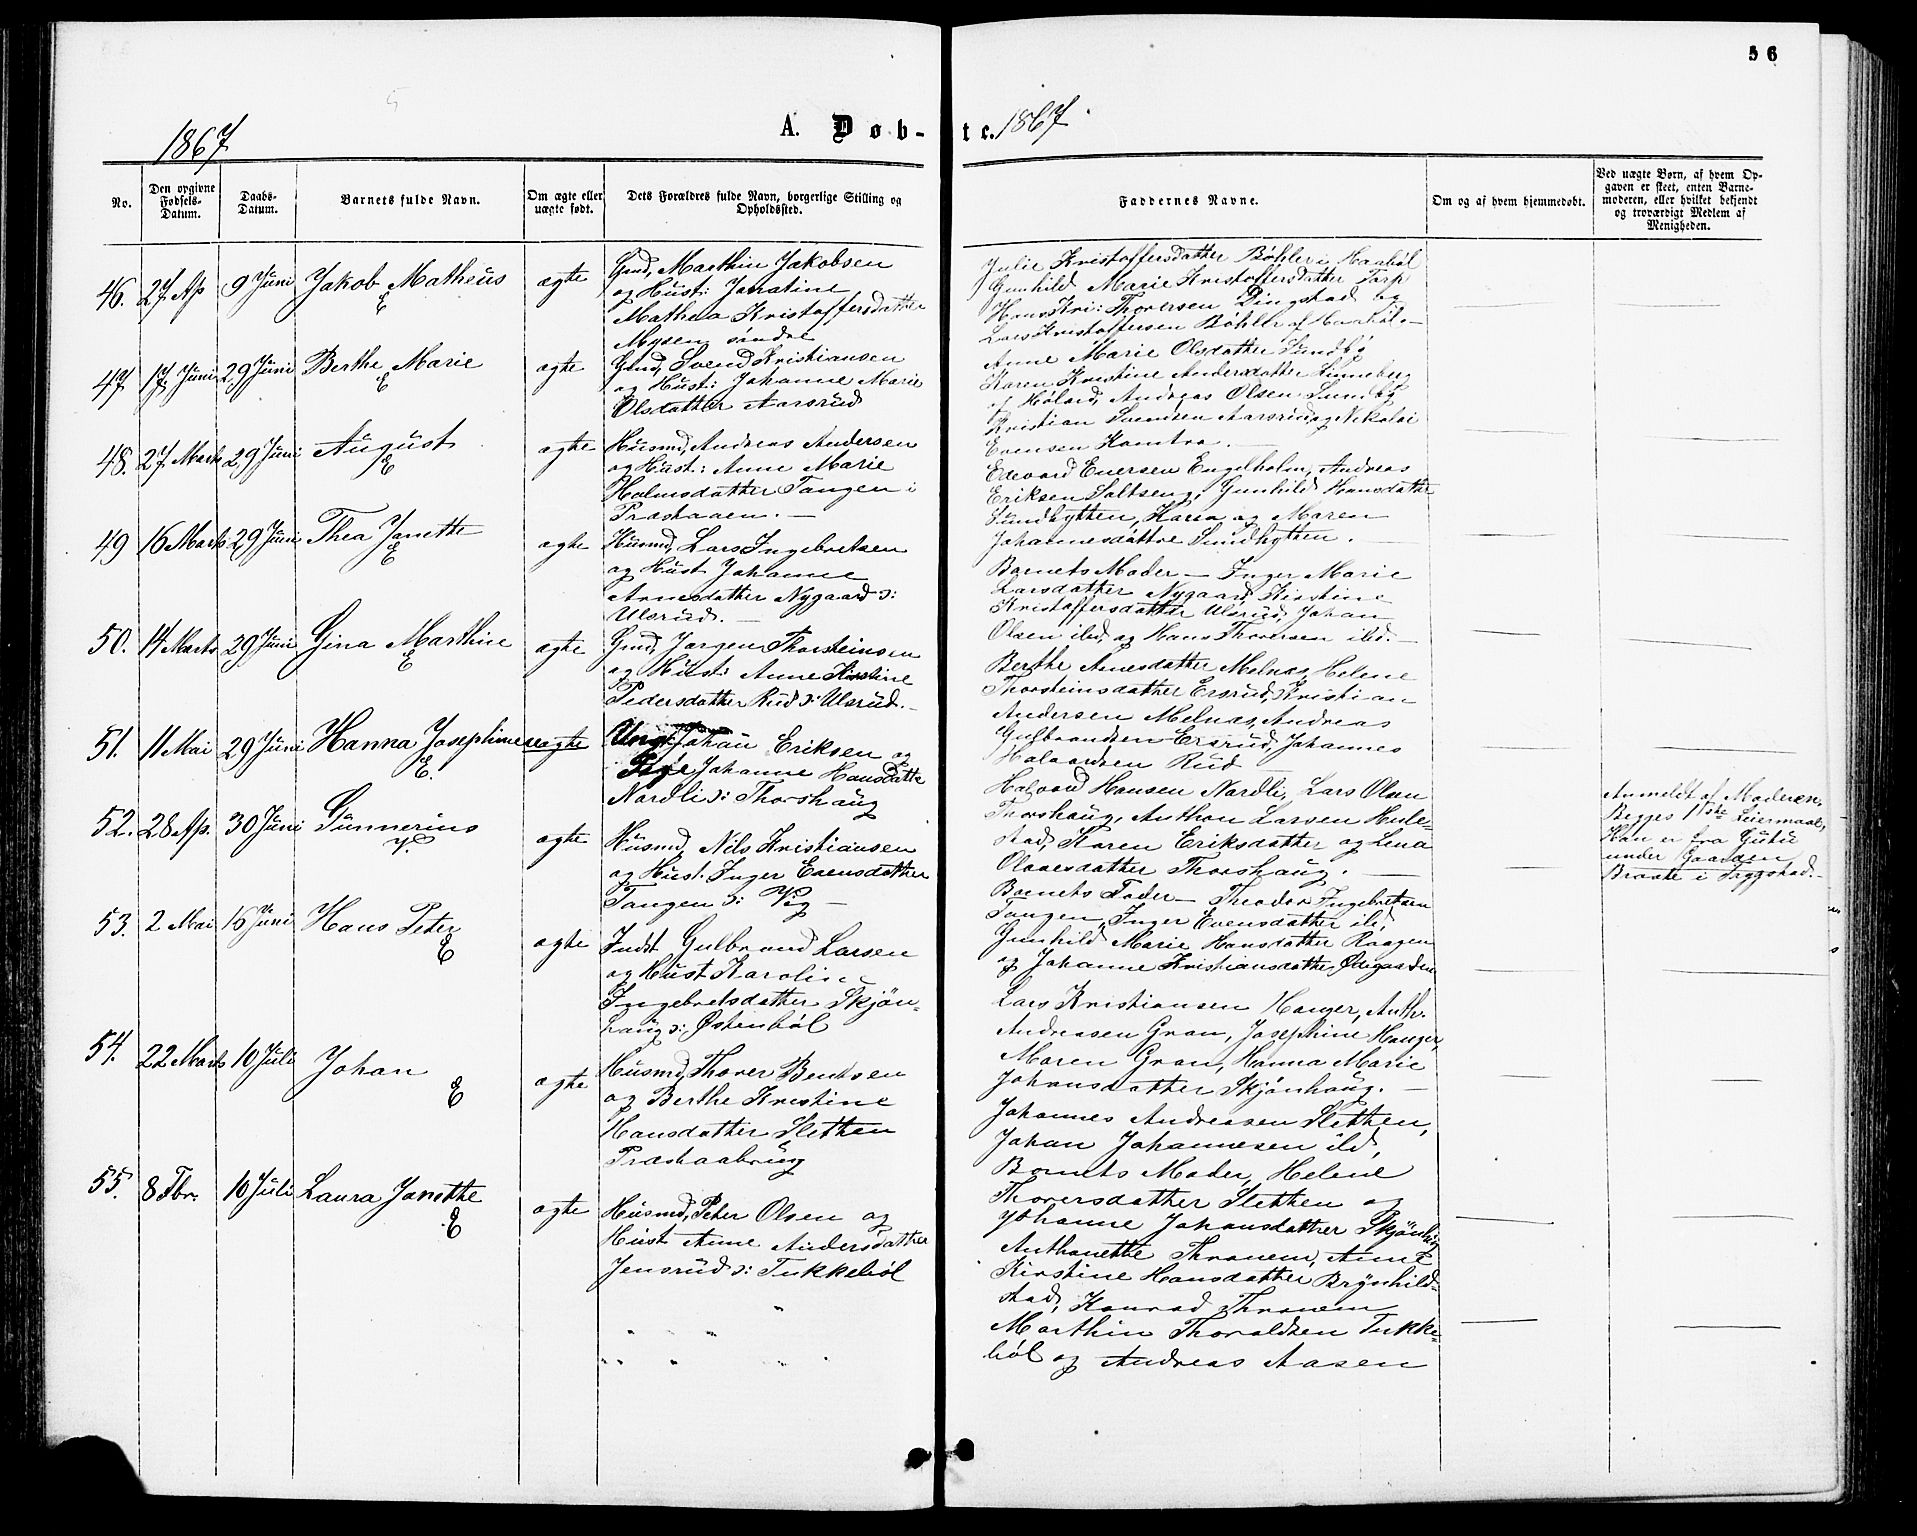 56
1867
A. Døb-
te.
1867
No.
Den opgivne Fødsels-Datum.
Daabs-Datum.
Barnets fulde Navn.
Om ægte eller uægte født.
Dets Forældres fulde Navn, borgerlige Stilling og Opholdssted.
Faddernes Navne.
Om og af hvem hjemmedøbt.
Ved uægte Børn, af hvem Opgaven er skeet, enten Barnemoderen, eller hvilket bekjendt og troværdigt Medlem af Menigheden.
46. 27 Ap 9 Juni Jakob Matheus ægte
E
Gmd, Marthin Jakobsen
og Hust:
Mathea Kristoffersdatter
Mysen søndre
Julie Kristoffersdatter Bøhler i Haabøl
Gunhild Marie Kristoffersdatter Torp
Hans Kri: Thoresen Ringstad og
Lars Kristoffersen Bøhler af Haabøl
47. 17 Juni 29 Juni Berthe Marie ægte
E
Gmd, Svend Kristiansen
og Hust: Johanne Marie
Olsdatter Aarsrud
Anne Marie Olsdatter Sundby
Karen Kristine Andersdatter Linneberg
af Høland, Andreas Olsen Sundby
Kristian Svendsen Aarsrud og Nikolai
Evensen Komtro.
48. 27 Marts 29 Juni August ægte
E
Husmd, Andreas Andersen
og Hust: Anne Marie
Holmsdatter Tangen i
Edvard Evensen Engelholm, Andreas
Eriksen Saltseng, Gunhild Hansdatter
Sundhytten, Karen og Maren
Johannesdøttre Sundhytten.
49 16 Marts 29 Juni Thea Janette ægte
E
Husmd, Lars Ingebretsen
og Hust Johanne
Arnesdatter Nygaard ɔ:
Ulsrud.
Barnets Moder — Inger Marie
Larsdatter Nygaard, Kirstine
Kristoffersdatter Ulsrud, Johan
Olsen ibd, og Hans Thoresen ibd.
50. 14 Marts 29 Juni Gina Marthine ægte
E
Gmd, Jørgen Thorsteinsen
og Hust: Anne Kirstine
Pedersdatter Rud ɔ: Ulsrud.
Berthe Arnesdatter Melnæs, Helene
Thorsteinsdatter Ersrud, Kristian
Andersen Melnæs, Andreas
Gulbrandsen Ersrud, Johannes
Halvorsen Rud
51. 11 Mai 29 Juni Hanna Josephine uægte
E.
Ungk: Johan Eriksen og
Pige Johanne Hansdatter
Nordli ɔ: Thorshaug
Halvord Hansen Nordli, Lars Olsen
Thorshaug, Anthon Larsen Hule-
stad, Karen Eriksdatter og Lina
Olavesdatter Thorshaug.
Anmeldt af Moderen,
Begges 1ste Leiermaal,
Han er fra Gutu
under Gaarden
Braate i Trygstad.
52. 28 Ap. 30 Juni Gunnerius ægte
V.
Husmd, Nils Kristiansen
og Hust. Inger Evensdatter
Tangen ɔ: Vig
Barnets Fader — Theodor Ingebretsen
Tangen, Inger Evensdatter ibd,
Gunhild Marie Hansdatter Raagen
og Johanne Kristiansdatter Ødegaarden
53. 2 Mai 16 Juni Hans Peter ægte
E
Indst Gulbrand Larsen
og Hust Karoline
Ingebretsdatter Skjøn-
haug ɔ: Østenbøl
Lars Kristiansen Hauger, Anth.
Andreasen Gran, Josephine Hauger,
Maren Gran, Hanna Marie
Johansdatter Skjønhaug.
54. 22 Marts 10 Juli Johan ægte
E
Husmd, Thorer Bentsen
og Berthe Kristine
Hansdatter Sletten
Johannes Andreasen Sletten,
Johan Johannesen ibd,
Barnets Moder, Helene
Thorersdatter Sletten og
Johanne Johansdatter Skjønhg
55. 8 Fbr. 10 Juli Laura Janette ægte
E
Husmd, Peter Olsen og
Hust Anne Andersdatter
Jensrud ɔ: Tukkebøl
Anthonette Thronsen, Anne
Kirstine Hansdatter Brynhild-
stad, Konrad Thronsen
Marthin Thoraldsen Tukke-
bøl og Andreas Aasen